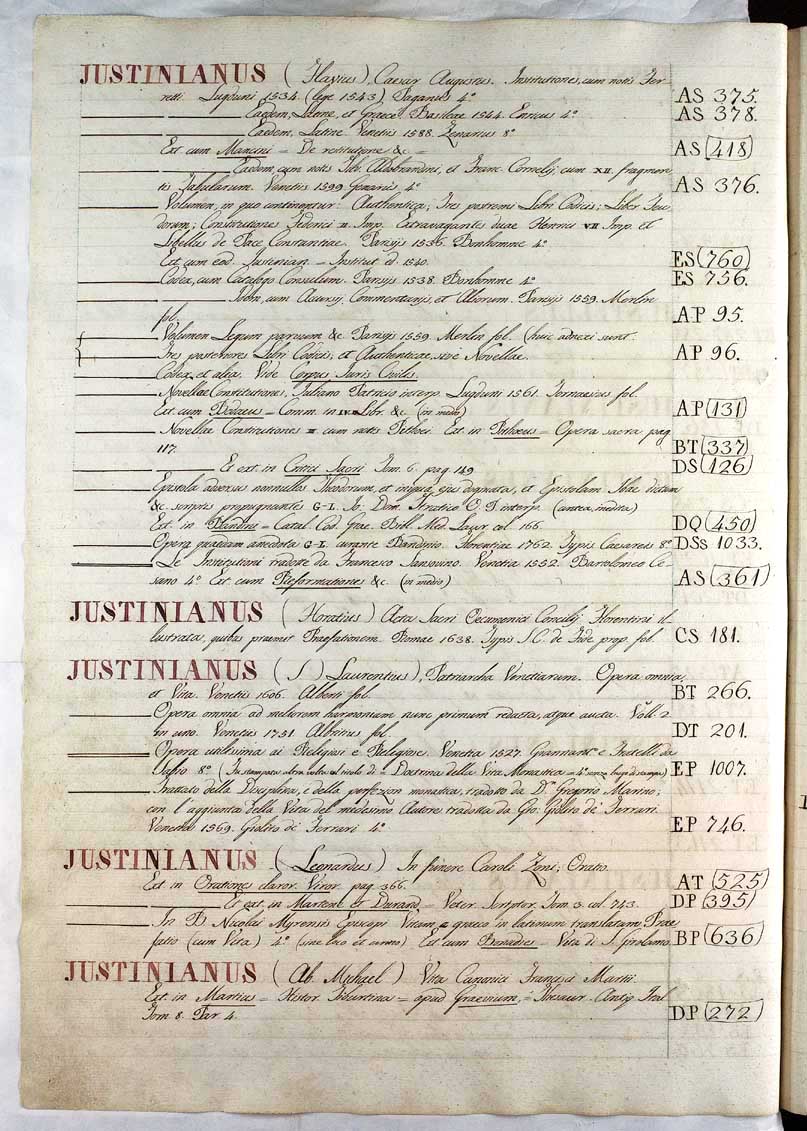 JUSTINIANUS (Flavius) Caesar Augustus. Institutiones, cum notis Fer-
retti. Lugduni 1534. (lege 1543) Paganus 4° AS 375.
Eaedem, Latine, et Graece. Basileae 1544. Enricus 4° AS 378.
Eaedem, Latine Venetiis 1588. Zenarius 8°
Ext cum Mancini = De restitutione &c = AS (418)
Eaedem, cum notis Jo. Aldobrandini, et Franc. Cornelij, cum XII. fragmen-
tis Tabularum. Venetiis 1599 4° AS 376.
Volumen, in quo continentur: Authentica; Tres postremi Libri Codicis; Liber Feu-
dorum; Constitutiones Federici II. Imp. Extravagantes duae Henrici VII Imp. et
Libellus de Pace Constantiae. Parisijs 1536. Bonhomme 4°
Ext cum eod. Justinian = Institut ed. 1540. ES (760)
Codex, cum Catalogo Consulum. Parisijs 1538. Bonhomme 4° ES 756.
Idem, cum Accursij Commentarijs, et Aliorum. Parisijs 1559. Merlin
fol. AP 95.
Volumen Legum parvum &c. Parisijs 1559. Merlin fol. (huic adnexi sunt
Tres posteriores Libri Codicis; et Authenticae, sive Novellae. AP 96.
Codex, et alia. Vide Corpus Juris Civilis.
Novellae Constitutiones, Juliano Patricio interp. Lugduni 1561. Tornaesius fol.
Ext cum = Comm. in IV Libr. &c. (in medio) AP (131)
Novellae Constitutiones = cum notis Pithoei. Ext in Pithoeus = Opera sacra pag
117. BT (337)
Et ext. in Critici Sacri Tom. 6. pag. 149 DS (126)
Epistola adversus nonnullos Theodorum, et impia ejus dogmata, et Epistolam Ibae dictam
&c. scriptis propugnantes G-L. Jo. Dom. O. P. interp. (antea inedita)
Ext. in Bandini = Catal. Cod. Grae. Bibl. Med. Laur col. 166. DQ (450)
Opera quaedam anecdota G-L. curante Bandinio. Florentiae 1762. Typis Caesareis 8° DSs 1033.
Le Institutioni tradotte da Francesco Sansovino. Venetia 1552. Bartolomeo Ce-
sano 4° Ext cum Reformationes &c. (in medio) AS (361)
JUSTINIANUS (Horatius) Acta Sacri Oecumenici Concilij Florentini il-
lustrata, quibus praemit Praefationem. Romae 1638. Typis S.C. de Fide prop. fol. CS 181.
JUSTINIANUS (S.) Laurentius), Patriarcha Venetiarum. Opera omnia,
et Vita. Venetiis 1606. Alberti fol. BT 266.
Opera omnia ad meliorem harmoniam nunc primum redacta, atque aucta. Voll 2
in uno. Venetiis 1751 Albritius fol. DT 201.
Opera utilissima ai Religiosi e Religiose. Venetia 1527. e Fratelli da
Sabio 8° (Ristampata altra volta col titolo di = Dottrina della Vita Monastica = 4° senza luogo di stampa) EP 1007.
Trattato della Disciplina, e della perfezion monastica; tradotto da D. Gregorio Marino;
con l'aggiunta della Vita del medesimo Autore tradotta da Gio. Giolito de' Ferrari.
Venetia 1569. Giolito de' Ferrari 4° EP 746.
JUSTINIANUS (Leonardus) In funere Caroli Zeni; Oratio.
Ext in Orationes claror. Viror. pag. 366. AT (525)
Et ext. in Martene et Durand = Veter. Scriptor. Tom. 3. col. 743. DP (395)
In D. Nicolai Myrensis Episcopi Vitam, e graeco in latinum translatam, Prae-
fatio (cum Vita) 4° (sine loco et anno) Ext cum = Vita di S. Girolamo BP (636)
JUSTINIANUS (Ab. Michael) Vita Canonici Francisci Martii.
Ext. in Martius = Histor. Tiburtina = apud Graevium = Thesaur. Antiq. Ital.
Tom. 8. Par. 4. DP (272)